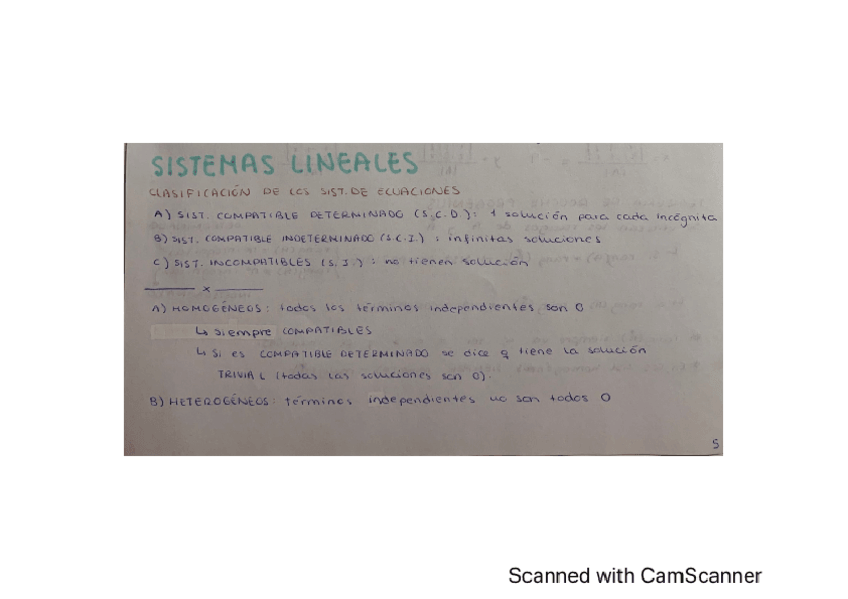 SISTEMAS LINEALES
CLASIFICACIÓN DE LOS SIST. DE ECUACIONES
A) SIST. COMPATIBLE DETERMINADO (S.C.D.): 1 solución para cada incógnita
B) SIST. COMPATIBLE INDETERMINADO (S.C.I.): infinitas soluciones
C) SIST. INCOMPATIBLES (S.I.): no tienen solución
x
A) HOMOGÉNEOS: todos los términos independientes son 0
↳ siempre COMPATIBLES
↳ Si es COMPATIBLE DETERMINADO se dice q tiene la solución
TRIVIAL (todas las soluciones son 0).
B) HETEROGÉNEOS: términos independientes no son todos 0
5
Scanned with CamScanner